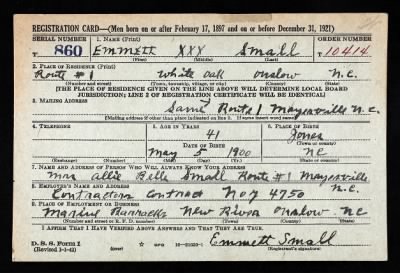 REGISTRATION CARD—(Men born on or after February 17, 1897 and on or before December 31, 1921)
SERIAL NUMBER 1. NAME (Print) ORDER NUMBER
T 860 Emmett XXX Small T 10414
(First) (Middle) (Last)
2. PLACE OF RESIDENCE (Print)
Route #1 White oak onslow N.C.
(Number and street) (Town, township, village, or city) (County) (State)
[THE PLACE OF RESIDENCE GIVEN ON THE LINE ABOVE WILL DETERMINE LOCAL BOARD
JURISDICTION; LINE 2 OF REGISTRATION CERTIFICATE WILL BE IDENTICAL]
3. MAILING ADDRESS
Same Route 1 Maysville N.C.
(Mailing address if other than place indicated on line 2. If same insert word same)
4. TELEPHONE 5. AGE IN YEARS 6. PLACE OF BIRTH
41 Jones
DATE OF BIRTH (Town or county)
May 5 1900 NC
(Exchange) (Number) (Mo.) (Day) (Yr.) (State or country)
7. NAME AND ADDRESS OF PERSON WHO WILL ALWAYS KNOW YOUR ADDRESS
Mrs Allie Belle Small Route #1 Maysville N.C.
8. EMPLOYER'S NAME AND ADDRESS
Contractors Contract Noy 4750
9. PLACE OF EMPLOYMENT OR BUSINESS
Marine Barracks New River Onslow NC
(Number and street or R. F. D. number) (Town) (County) (State)
I AFFIRM THAT I HAVE VERIFIED ABOVE ANSWERS AND THAT THEY ARE TRUE.
D. S. S. Form 1
(Revised 1-1-42) (over)
Emmett Small